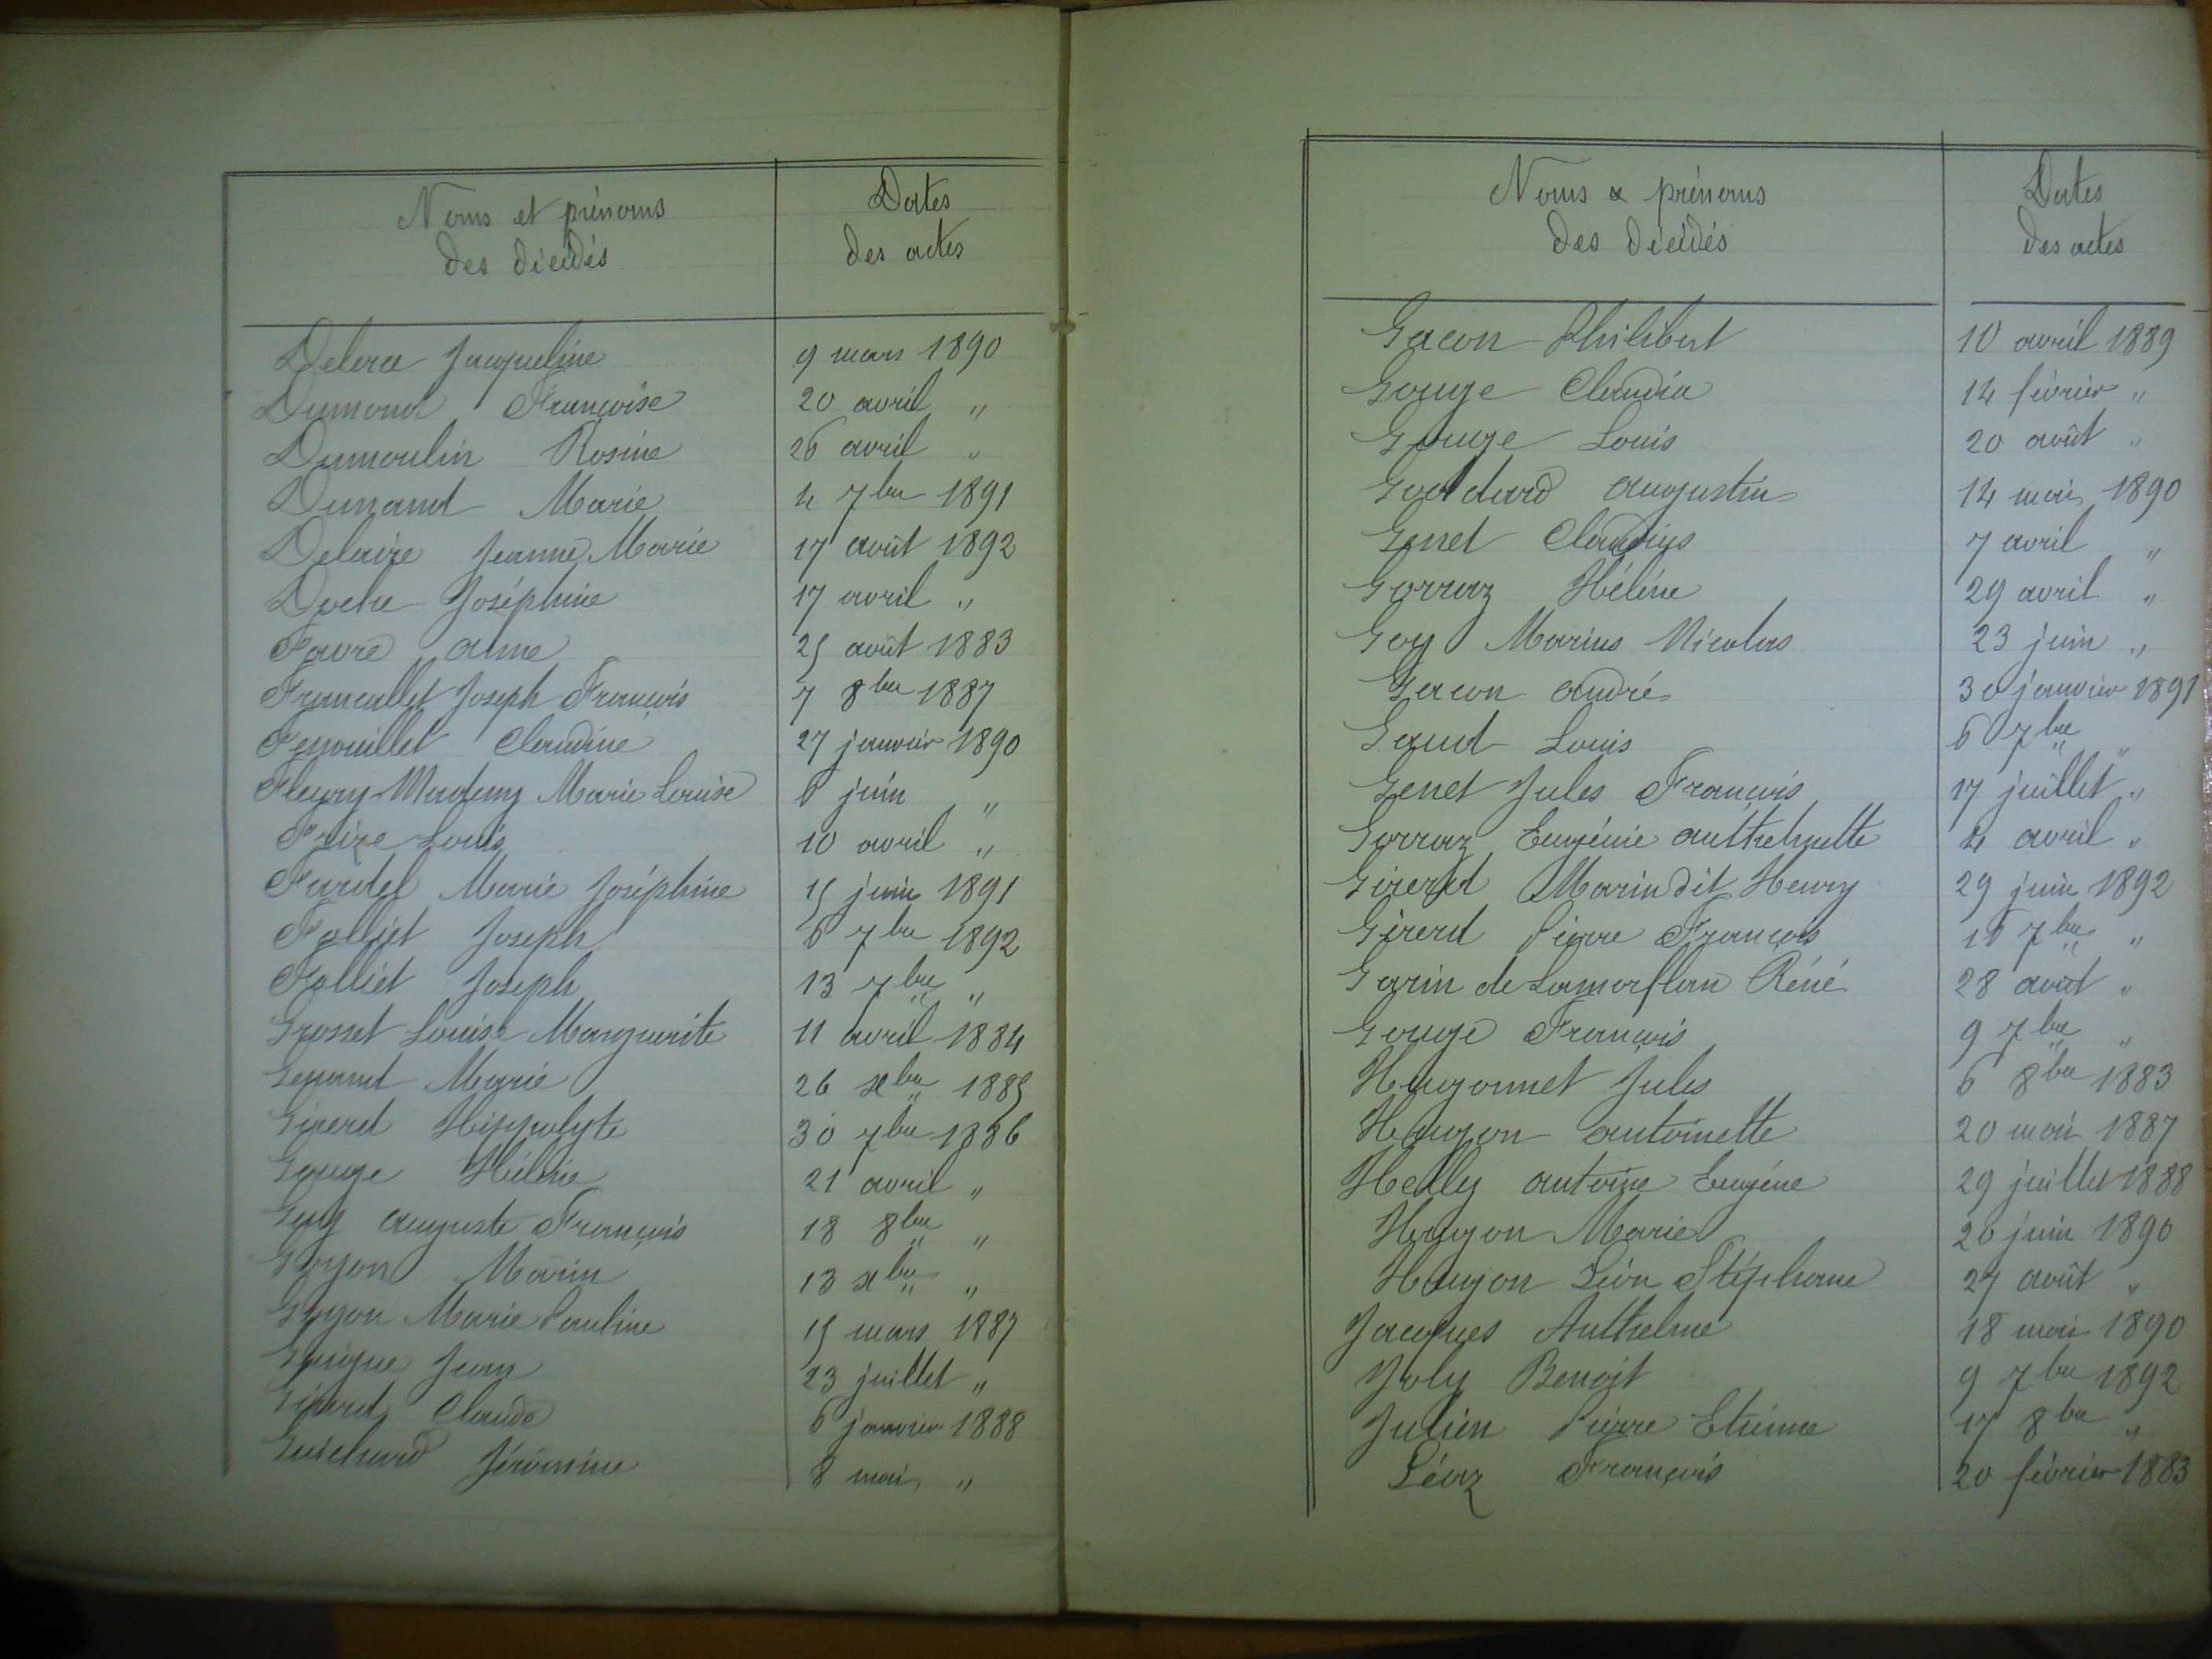 Noms et prénoms
des décédés
Dates
des actes
Delera Jacqueline 9 mars 1890
Dumond Françoise 20 avril "
Dumoulin Rosine 26 avril "
Dunand Marie 4 7bre 1891
Delaire Jeanne Marie 17 août 1892
Doche Joséphine 17 avril "
Favre Aimé 25 août 1883
Francallet Joseph François 7 8bre 1887
Fenouillet Claudine 27 janvier 1890
Fleury Marie Louise 6 juin "
Louis 10 avril "
Fardel Marie Joséphine 15 juin 1891
Folliet Joseph 6 7bre 1892
Folliet Joseph 13 7bre "
Grosset Louise Marguerite 11 avril 1884
Genand Marie 26 xbre 1885
Girerd Hippolyte 30 7bre 1886
Gouge Hélène 21 avril "
Guy Auguste François 18 8bre "
Goyon Marin 13 xbre "
Goyon Marie Pauline 15 mars 1887
Guigue Jean 23 juillet "
Girerd Claude 6 janvier 1888
Guichard Jéromine 8 mai "
Noms & prénoms
des décédés
Dates
des actes
Gacon Philibert 10 avril 1889
Gouge Claudia 14 février "
Gouge Louis 20 août "
Goddard Augustin 14 mai 1890
Genet Claudius 7 avril "
Gorraz Hélène 29 avril "
Goy Marius Nicolas 23 juin "
Gacon André 30 janvier 1891
Gaud Louis 6 7bre "
Genet Jules François 17 juillet "
Gorraz Eugénie Anthelmette 4 avril "
Girerd Marin dit Henry 29 juin 1892
Girerd Pierre François 16 7bre "
Garin de Lamorflan Réné 28 août "
Gouge François 9 7bre "
Hugonnet Jules 6 8bre 1883
Hugon Antoinette 20 mai 1887
Helly Antoine Eugène 29 juillet 1888
Hugon Marie 26 juin 1890
Hugon Léon Stéphane 27 août "
Jacques Anthelme 18 mai 1890
Joly Benoit 9 7bre 1892
Julien Pierre Etienne 17 8bre "
Léaz François 20 février 1883